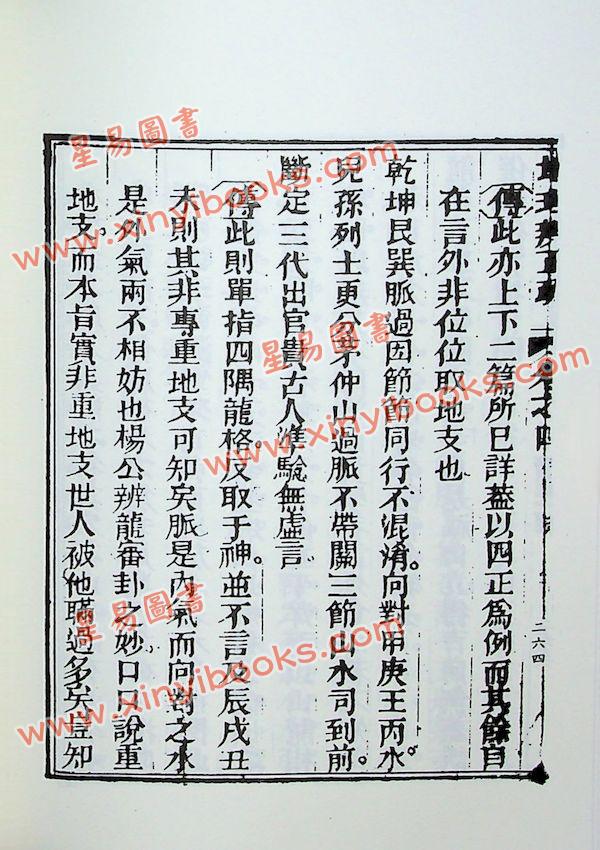 卷之四
二六四
傳此亦上下二篇所已詳葢以四正為例而其餘自
在言外非位位取地支也
乾坤艮巽脈過凹節節同行不混淆。向對甲庚壬丙水。
兒孫列士更分茅仲山過脈不帶關三節山水同到前。
斷定三代出官貴古人準驗無虛言
傳此則單指四隅龍格。反取于神。並不言及辰戌丑
未則其非專重地支可知矣脈是內氣而向對之水
是外氣兩不相妨也楊公辨龍審卦之妙口口說重
地支。而本旨實非重地支世人被他瞞過多矣豈知
星易圖書
www.xinyibooks.com
星易圖書
www.xinyibooks.com
星易圖書
www.xinyibooks.com